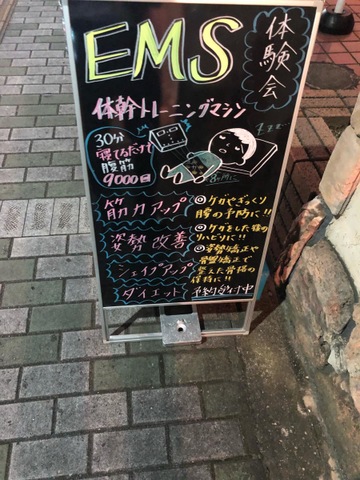 EMS
体験会
体幹トレーニングマシン
30分
寝てるだけで
腹筋
9000回
筋力アップ
◎ケガやぎっくり
腰の予防に!!
姿勢改善
◎ケガをした後の
リハビリに!!
シェイプアップ
◎姿勢矯正や
骨盤矯正で
整えた骨格の
保持に!!
ダイエット
予約受付中